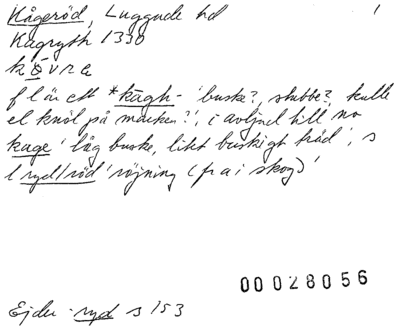 Kågeröd, Luggude hd 1
Kagryth 1330
f l är ett *kāgh- 'buske?, stubbe?, kulle
el knöl på marken?', i avljud till no
kage 'låg buske, litet buskigt träd', s
l ryd/röd 'röjning (fr a i skog)'
00028056
Ejder -ryd s 153